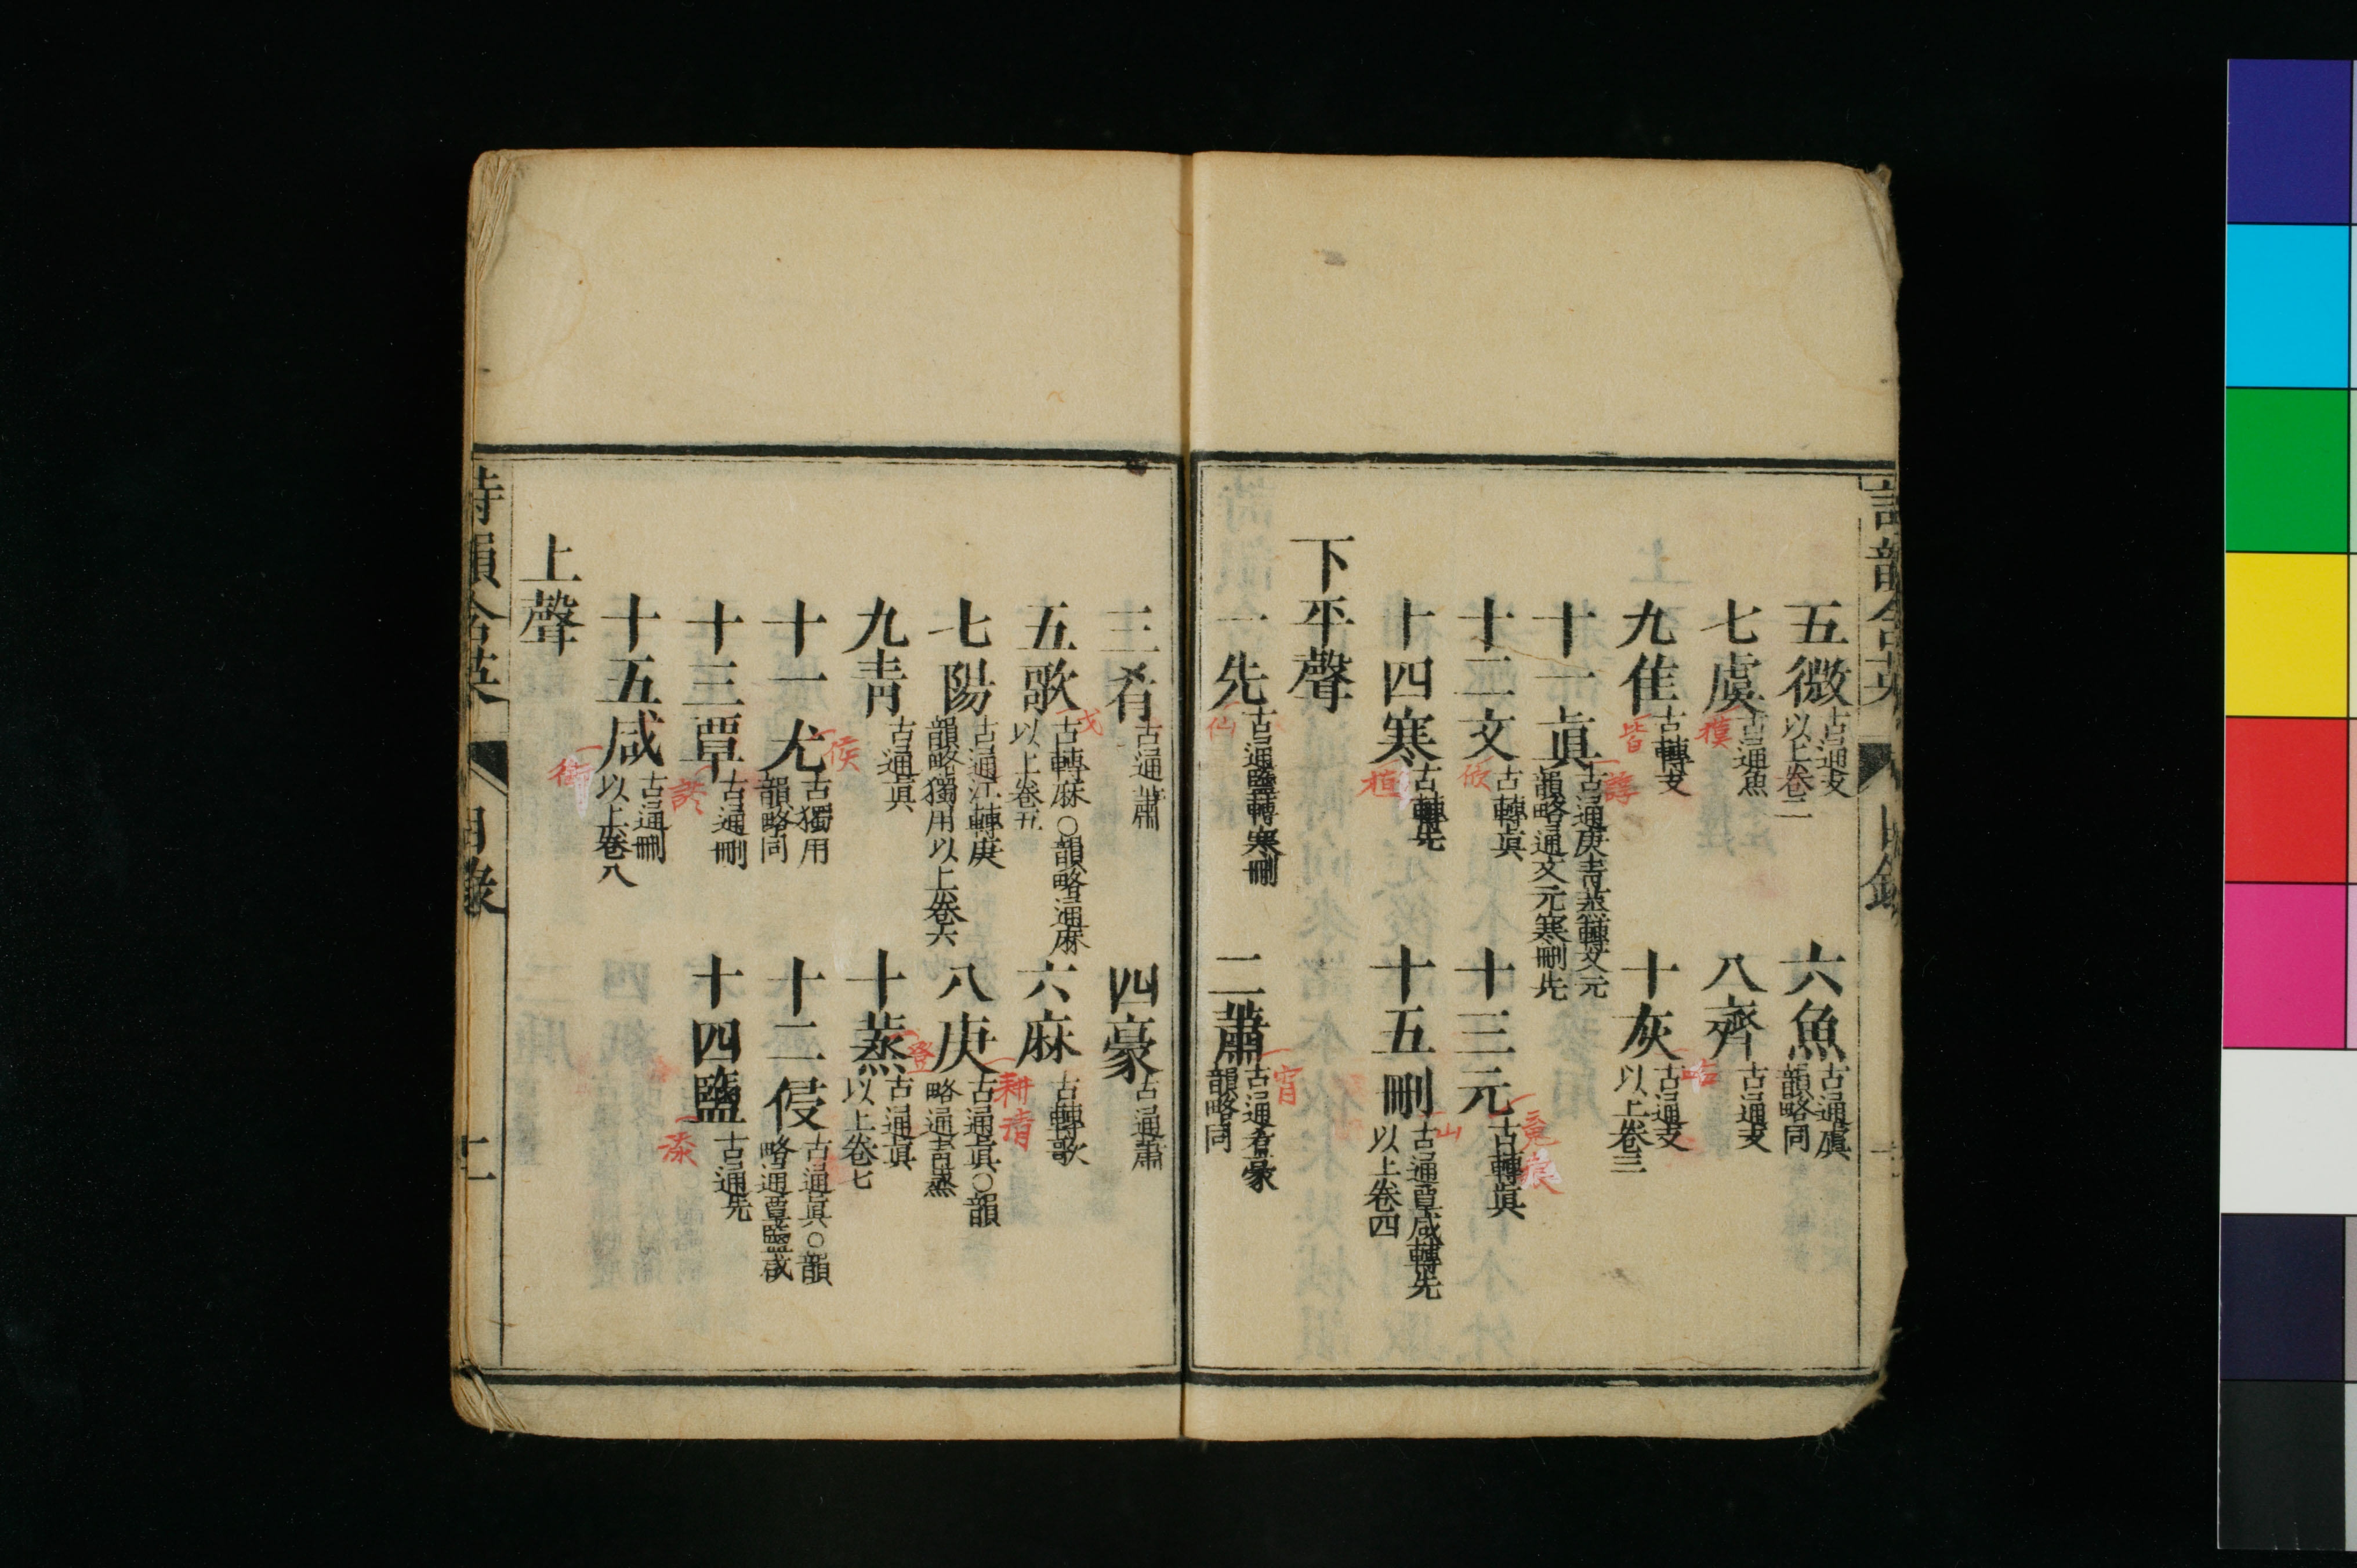 詩韻含英 目錄
五微 古通支 以上卷二 六魚 古通虞 韻略同
七虞 模 古通魚 八齊 古通支
九佳 皆 古轉支 十灰 咍 古通支 以上卷三
十一眞 諄 古通庚靑蒸轉文元 韻略通文元寒刪先
十二文 欣 古轉眞 十三元 魂痕 古轉眞
十四寒 桓 古轉先 十五刪 山 古通覃咸轉先 以上卷四
下平聲
一先 仙 古通鹽轉寒刪 二蕭 宵 古通肴豪 韻略同
三肴 古通蕭 四豪 古通蕭
五歌 戈 古轉麻○韻略通麻 以上卷五 六麻 古轉歌
七陽 古通江轉庚 韻略獨用以上卷六 八庚 耕清 古通眞○韻 略通靑蒸
九靑 古通眞 十蒸 登 古通眞 以上卷七
十一尤 侯 古獨用 韻略同 十二侵 古通眞○韻 略通覃鹽咸
十三覃 談 古通刪 十四鹽 添 古通先
十五咸 銜 古通刪 以上卷八
上聲
詩韻含英 目錄 二